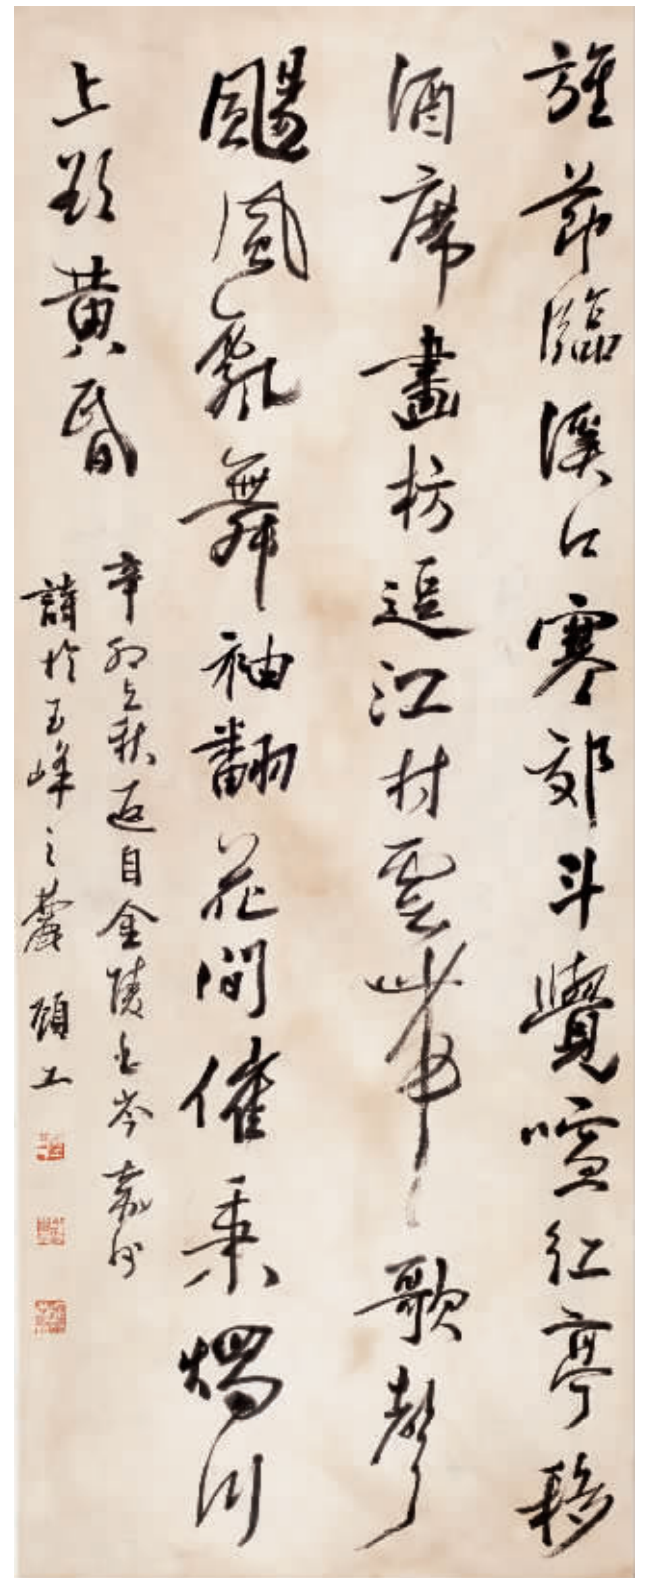 旌節臨溪口寒郊斗覺喧紅亭移
酒席畫枋逗江村雲帶歌聲
颺風飄舞袖翻花間催秉燭川
上欲黃昏
辛卯立秋返自金陵書岑嘉州
詩於玉峰之麓 顧工